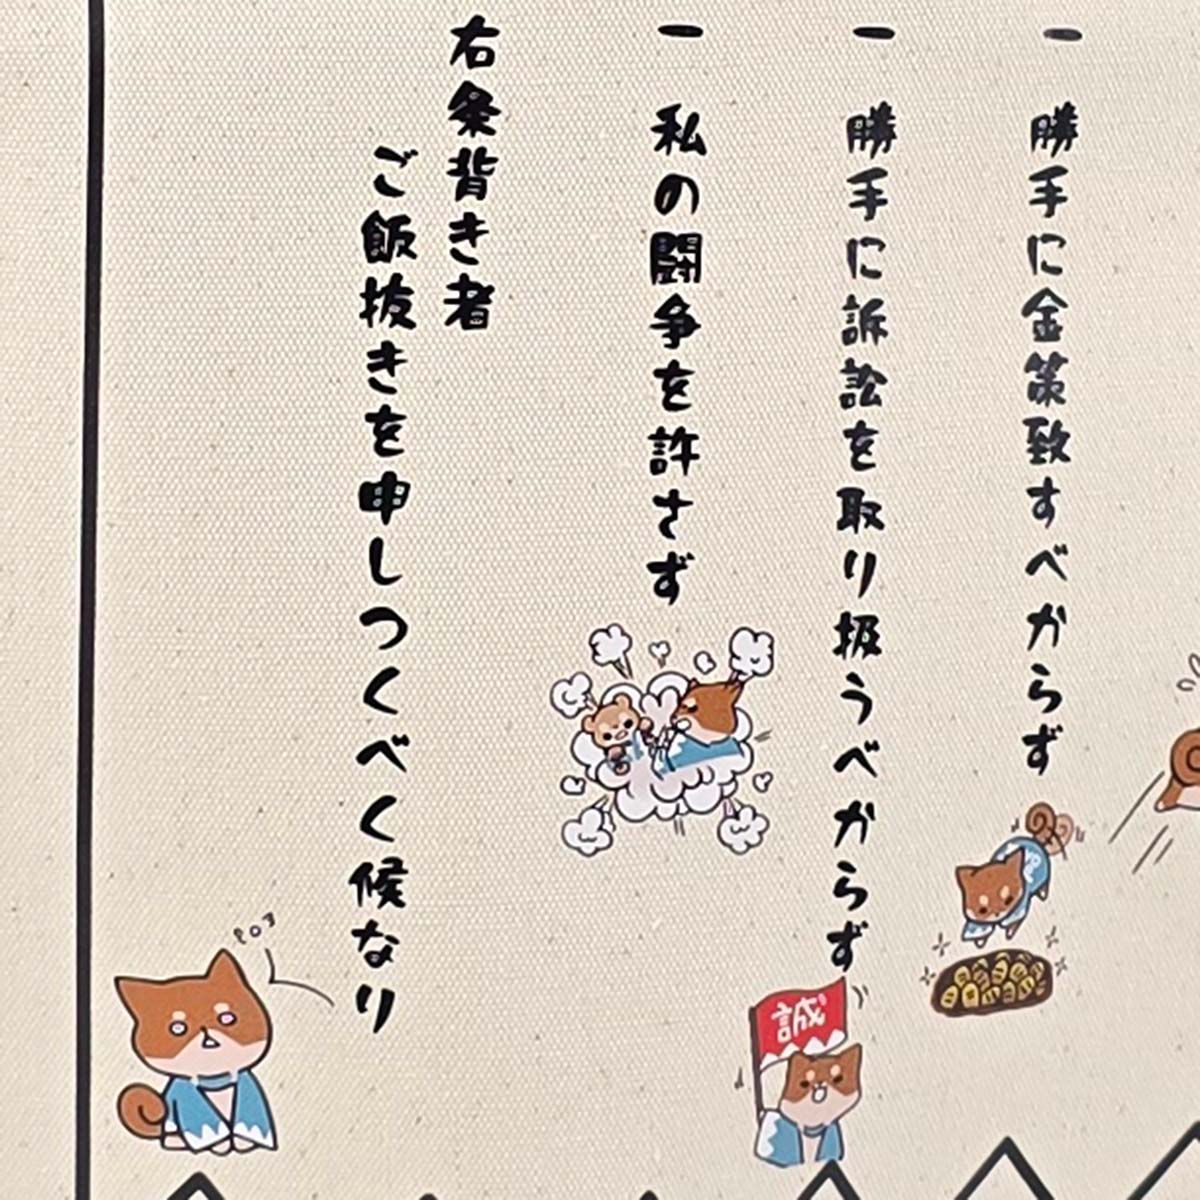 一 勝手に金策致すべからず
一 勝手に訴訟を取り扱うべからず
誠
一 私の闘争を許さず
右条背き者
ご飯抜きを申しつくべく候なり